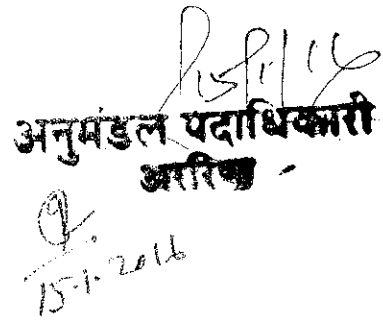 15/1/16
अनुमंडल पदाधिकारी
अररिया
15.1.2016